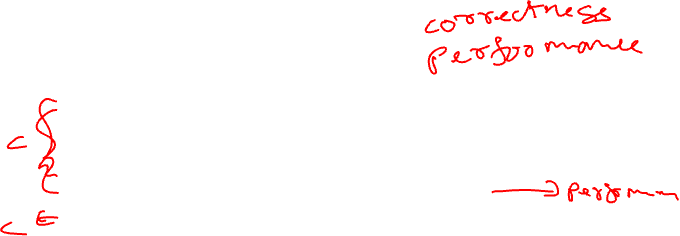 correctness
performance
C {
→ performan
C E